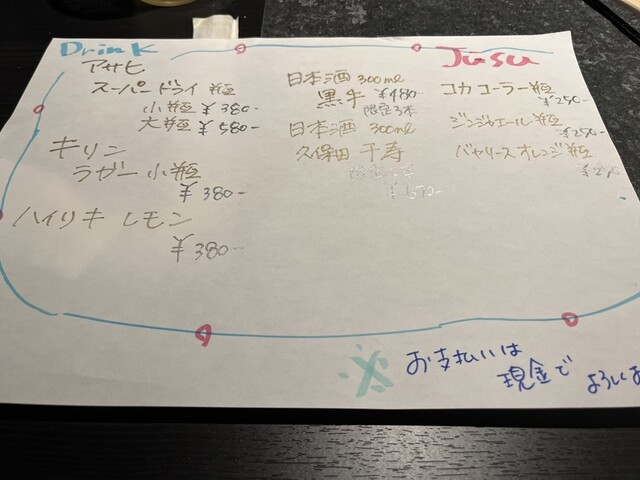 Drink
アサヒ
スーパードライ 瓶
小瓶 ¥380-
大瓶 ¥580-
キリン
ラガー小瓶
¥380-
ハイリキ レモン
¥380-
日本酒 300ml
黒牛 ¥980-
限定3本
日本酒 300ml
久保田 千寿
Jusu
コカコーラー瓶
¥250-
ジンジャエール瓶
¥250-
バヤリースオレンジ瓶
※ お支払いは
現金で